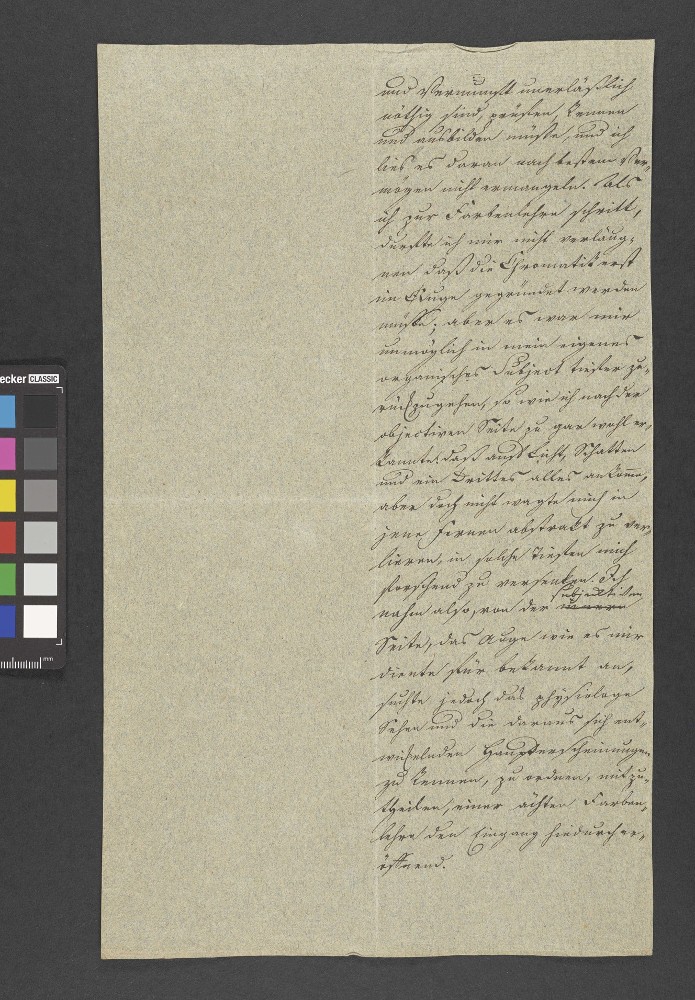 und Vernunft unerläßlich
nöthig sind, prüfen, kennen
und ausbilden müsse, und ich
lies es daran nach bestem Ver-
mögen nicht ermangeln. Als
ich zur Farbenlehre schritt,
durfte ich mir nicht verläug-
nen daß die Chromatik erst
im Auge gegründet werden
müsse; aber es war mir
unmöglich in mein eigenes
organisches Subject tiefer zu-
rückzugehen, so wie ich nach der
objectiven Seite zu gar wohl er-
kannte daß auf Licht, Schatten
und ein Drittes alles ankomme,
aber doch nicht wagte mich in
jene Fernen abstrakt zu ver-
lieren, in solche Tiefen mich
forschend zu versenken. Ich
subjectiven
nahm also, von der innern
Seite, das Auge wie es mir
diente für bekannt an,
suchte jedoch das physiologe
Sehen und die daraus sich ent-
wickelnden Haupterscheinungen
zu kennen, zu ordnen, mitzu-
theilen, einer ächten Farben-
lehre den Eingang hiedurch er-
öffnend.
ecker CLASSIC
mm